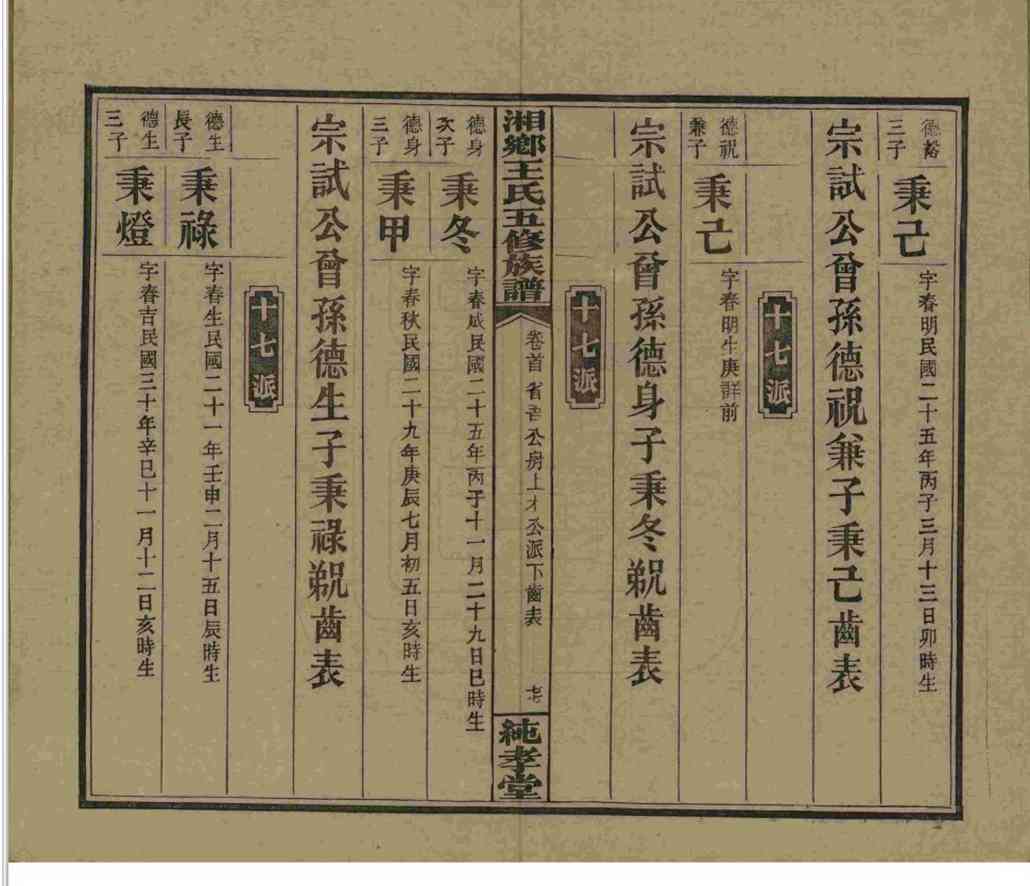 德裕三子
秉己
字春明民國二十五年丙子三月十三日卯時生
宗試公曾孫德祝兼子秉己齒表
十七派
德祝兼子
秉己
字春明生庚詳前
宗試公曾孫德身子秉冬覣齒表
十七派
湘鄉王氏五修族譜
卷首 省吾公房上才公派下齒表
純孝堂
德身次子
秉冬
字春咸民國二十五年丙子十一月二十九日巳時生
德身三子
秉甲
字春秋民國二十九年庚辰七月初五日亥時生
宗試公曾孫德生子秉祿覣齒表
十七派
德生長子
秉祿
字春生民國二十一年壬申二月十五日辰時生
德生三子
秉燈
字春吉民國三十年辛巳十一月十二日亥時生